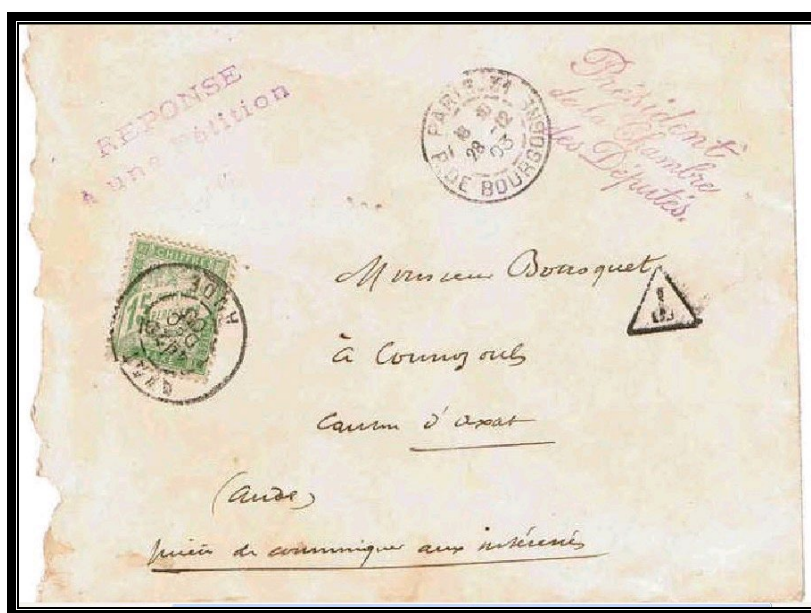 REPONSE
à une Pétition
PARIS
R. DE BOURGOGNE
28
03
Président
de la Chambre
des Députés.
A CHIFFRE
15
AUDE
AXAT
Monsieur Bousquet
à Counozouls
Canton d'axat
(Aude)
prière de communiquer aux intéressés